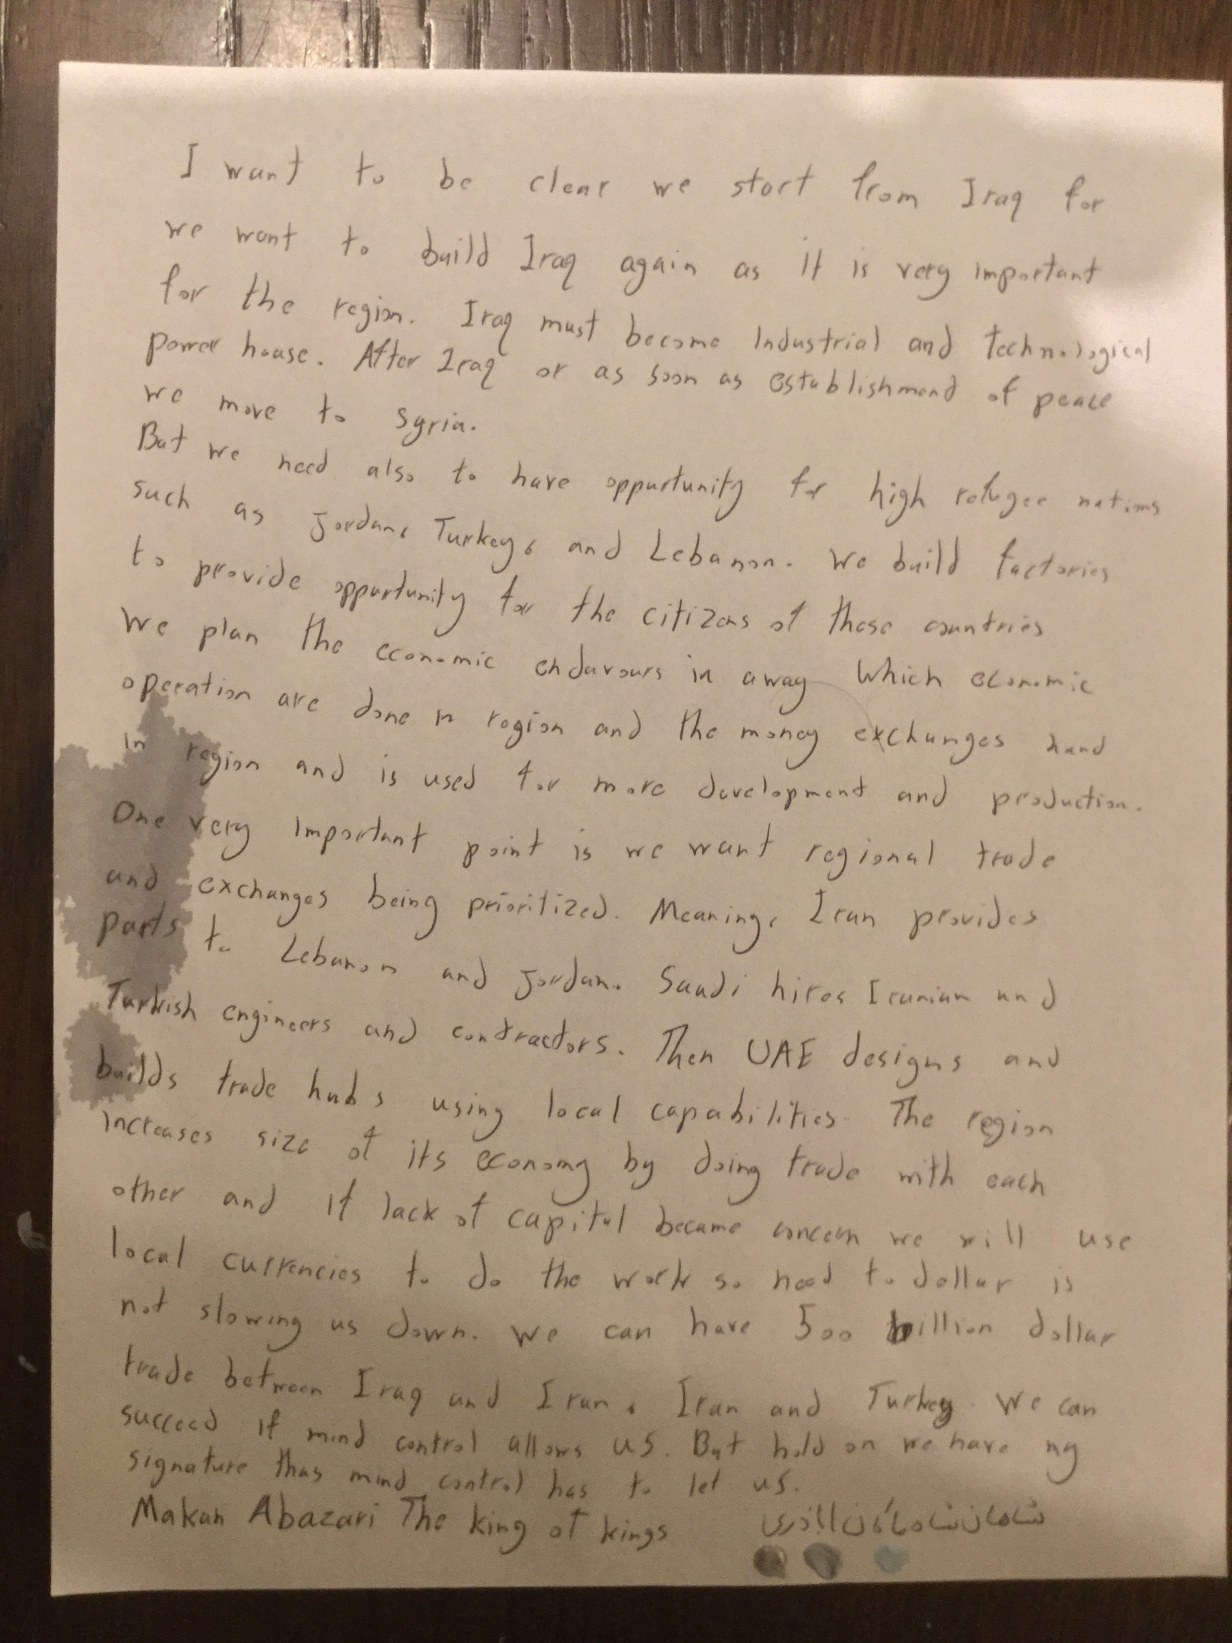 I want to be clear we start from Iraq for
we want to build Iraq again as it is very important
for the region. Iraq must become Industrial and technological
power house. After Iraq or as soon as establishment of peace
we move to Syria.
But we need also to have oppurtunity for high refugee nations
such as Jordan, Turkey, and Lebanon. We build factories
to provide oppurtunity for the citizens of these countries
We plan the economic endavours in away which economic
operation are done in region and the money exchanges hand
in region and is used for more development and production.
One very important point is we want regional trade
and exchanges being prioritized. Meaning, Iran provides
parts to Lebanon and Jordan. Saudi hires Iranian and
Turkish engineers and contractors. Then UAE designs and
builds trade hubs using local capabilities. The region
increases size of its economy by doing trade with each
other and if lack of capital became concern we will use
local currencies to do the work so need to dollar is
not slowing us down. We can have 500 billion dollar
trade between Iraq and Iran, Iran and Turkey. We can
succeed if mind control allows us. But hold on we have my
signature thus mind control has to let us.
Makan Abazari The king of kings شاهان شاه ماکان اباذری